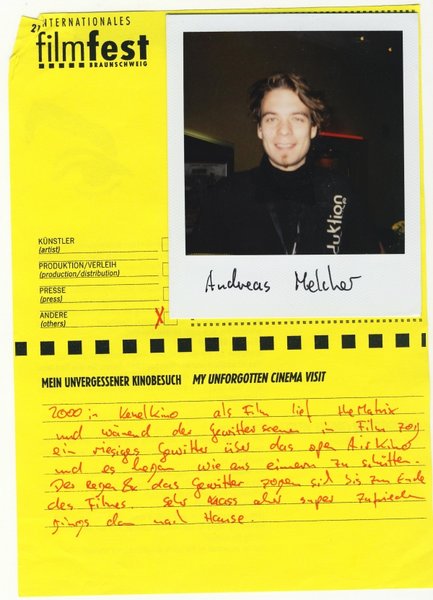 INTERNATIONALES
filmfest
BRAUNSCHWEIG
KÜNSTLER
(artist)
PRODUKTION/VERLEIH
(production/distribution)
PRESSE
(press)
ANDERE
(others)
X
duktion
Andreas Melcher
MEIN UNVERGESSENER KINOBESUCH MY UNFORGOTTEN CINEMA VISIT
2000 in Kino als Film lief the Matrix
und wärend der Gewitterscenen in Film zog
ein riesiges Gewitter über das open Air Kino
und es begann wie aus eimern zu schütten.
Der regen & das Gewitter zogen sich bis zum Ende
des Filmes. Sehr nass aber super zufrieden
gings dan nach Hause.